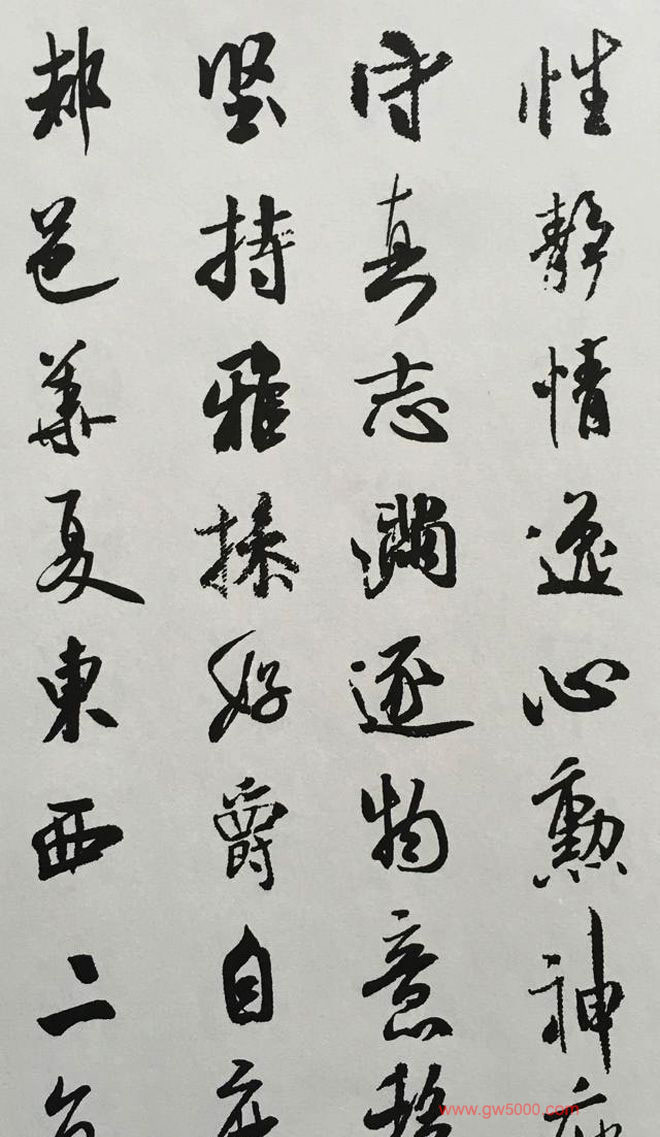 性靜情逸心勲神
守真志滿逐物意
堅持雅操好爵自
都邑華夏東西二
www.gw5000.com